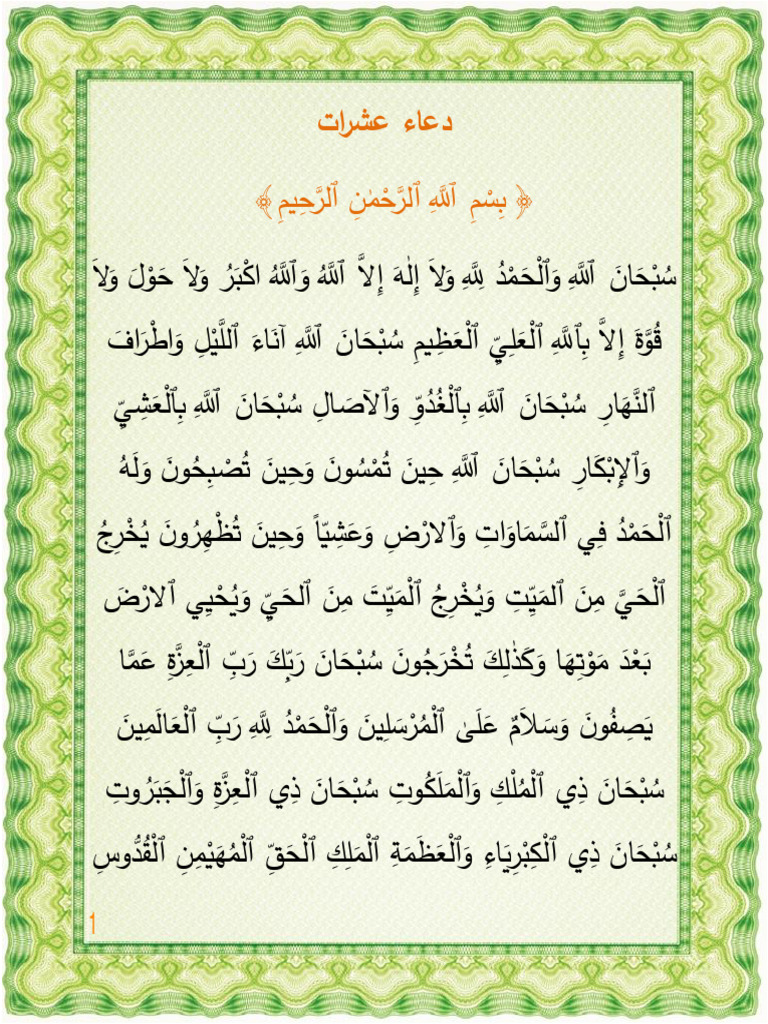 دعاء عشرات
﴿ بِسْمِ ٱللَّهِ ٱلرَّحْمٰنِ ٱلرَّحِيمِ ﴾
سُبْحَانَ ٱللَّهِ وَٱلْحَمْدُ لِلَّهِ وَلاَ إِلٰهَ إِلاَّ ٱللَّهُ وَٱللَّهُ اكْبَرُ وَلاَ حَوْلَ وَلاَ
قُوَّةَ إِلاَّ بِٱللَّهِ ٱلْعَلِيِّ ٱلْعَظِيمِ سُبْحَانَ ٱللَّهِ آنَاءَ ٱللَّيْلِ وَاطْرَافَ
ٱلنَّهَارِ سُبْحَانَ ٱللَّهِ بِٱلْغُدُوِّ وَٱلآصَالِ سُبْحَانَ ٱللَّهِ بِٱلْعَشِيِّ
وَٱلإِبْكَارِ سُبْحَانَ ٱللَّهِ حِينَ تُمْسُونَ وَحِينَ تُصْبِحُونَ وَلَهُ
ٱلْحَمْدُ فِي ٱلسَّمَاوَاتِ وَٱلارْضِ وَعَشِيّاً وَحِينَ تُظْهِرُونَ يُخْرِجُ
ٱلْحَيَّ مِنَ ٱلمَيِّتِ وَيُخْرِجُ ٱلْمَيِّتَ مِنَ ٱلحَيِّ وَيُحْيِي ٱلارْضَ
بَعْدَ مَوْتِهَا وَكَذٰلِكَ تُخْرَجُونَ سُبْحَانَ رَبِّكَ رَبِّ ٱلْعِزَّةِ عَمَّا
يَصِفُونَ وَسَلاَمٌ عَلَىٰ ٱلْمُرْسَلِينَ وَٱلْحَمْدُ لِلَّهِ رَبِّ ٱلْعَالَمِينَ
سُبْحَانَ ذِي ٱلْمُلْكِ وَٱلْمَلَكُوتِ سُبْحَانَ ذِي ٱلْعِزَّةِ وَٱلْجَبَرُوتِ
سُبْحَانَ ذِي ٱلْكِبْرِيَاءِ وَٱلْعَظَمَةِ ٱلْمَلِكِ ٱلْحَقِّ ٱلْمُهَيْمِنِ ٱلْقُدُّوسِ
1